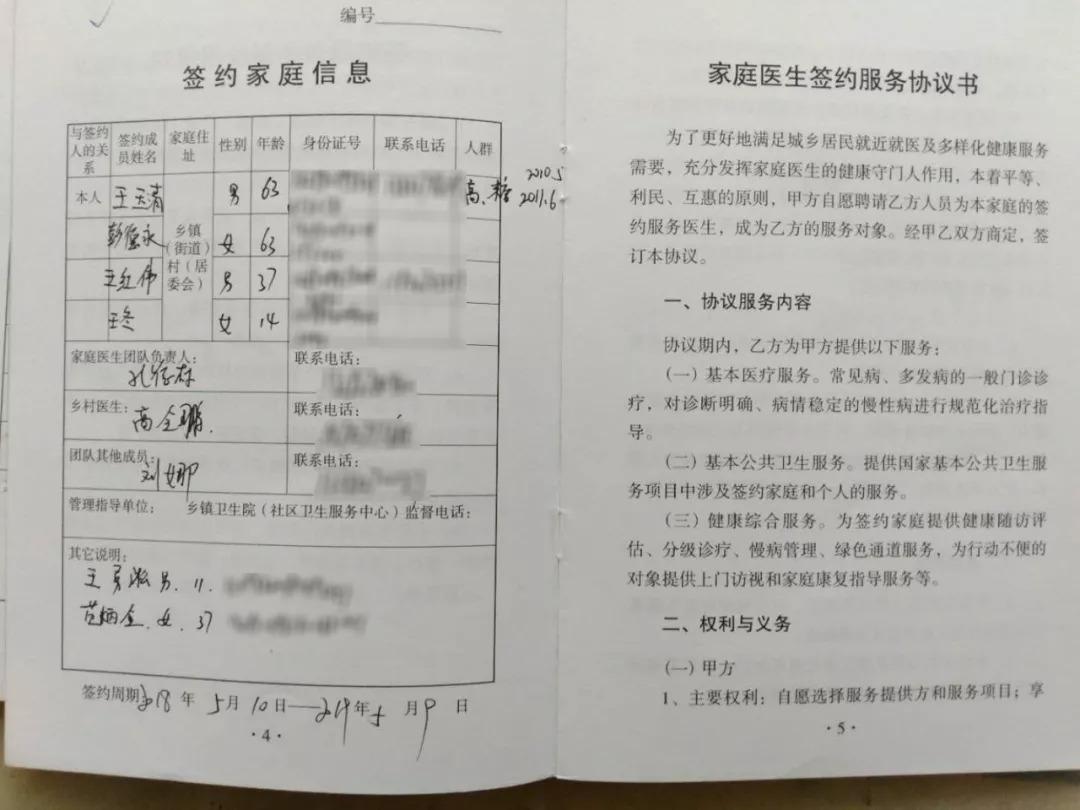 编号
签约家庭信息
与签约人的关系 签约成员姓名 家庭住址 性别 年龄 身份证号 联系电话 人群
本人 王玉清 男 63 高、糖 2010.5 2011.6
乡镇(街道)村(居委会)
女 63
王红伟 男 37
王冬 女 14
家庭医生团队负责人: 联系电话:
乡村医生: 高全鹏 联系电话:
团队其他成员: 刘娜 联系电话:
管理指导单位: 乡镇卫生院(社区卫生服务中心)监督电话:
其它说明:
男. 11.
女. 37
签约周期 2018 年 5月 10日——2019年5月9日
·4·
家庭医生签约服务协议书
为了更好地满足城乡居民就近就医及多样化健康服务
需要,充分发挥家庭医生的健康守门人作用,本着平等、
利民、互惠的原则,甲方自愿聘请乙方人员为本家庭的签
约服务医生,成为乙方的服务对象。经甲乙双方商定,签
订本协议。
一、协议服务内容
协议期内,乙方为甲方提供以下服务:
(一)基本医疗服务。常见病、多发病的一般门诊诊
疗,对诊断明确、病情稳定的慢性病进行规范化治疗指
导。
(二)基本公共卫生服务。提供国家基本公共卫生服
务项目中涉及签约家庭和个人的服务。
(三)健康综合服务。为签约家庭提供健康随访评
估、分级诊疗、慢病管理、绿色通道服务,为行动不便的
对象提供上门访视和家庭康复指导服务等。
二、权利与义务
(一)甲方
1、主要权利:自愿选择服务提供方和服务项目;享
·5·